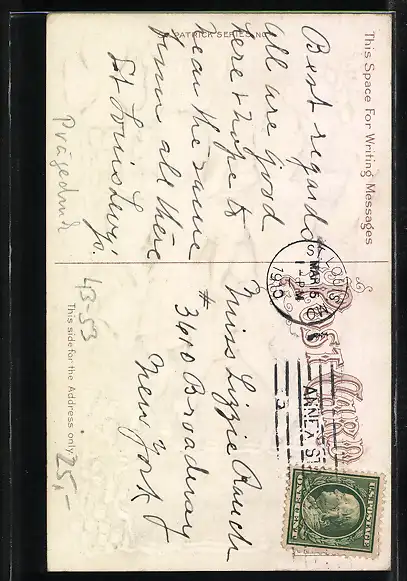 ST PATRICK SERIES NO.
This Space For Writing Messages
Best regards
all are good
here & hope to
hear the same
from all there
St Louis
Prägedruck
ST. LOUIS
MAR 16
PM
1910
ANNEX ST
POST CARD
Miss Lizzie Rauch
# 3610 Broadway
New York
43-53
This side for the Address only
25,-
U.S. POSTAGE
ONE CENT